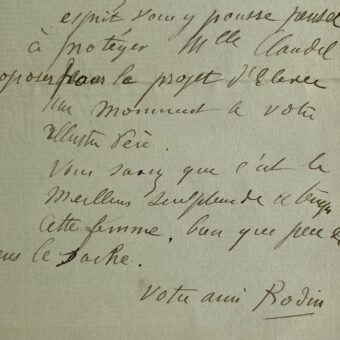 esprit vous y pousse pensez
à protéger Mlle Claudel
oposer pour la projet d'Elever
un monument a votre
illustre Père.
Vous savez que c'est le
Meilleur sculpteur de
cette femme, bien que peu
le sache.
Votre ami Rodin